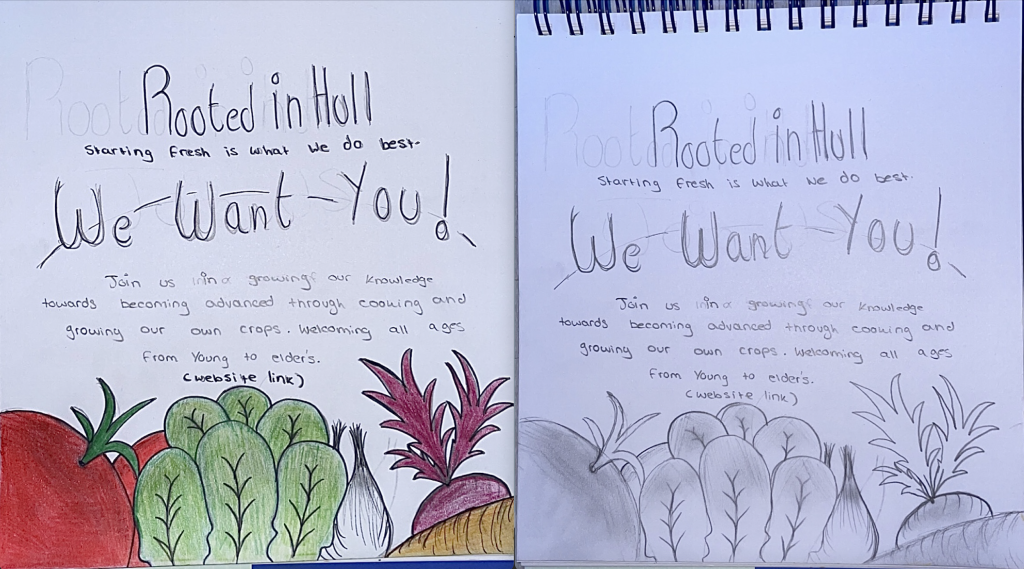 Rooted in Hull
Starting fresh is what we do best.
We - Want - You!
Join us in growing our knowledge
towards becoming advanced through cooking and
growing our own crops. Welcoming all ages
from Young to elder's.
(website link)
Rooted in Hull
Starting fresh is what we do best.
We - Want - You!
Join us in growing our knowledge
towards becoming advanced through cooking and
growing our own crops. Welcoming all ages
from Young to elder's.
(website link)